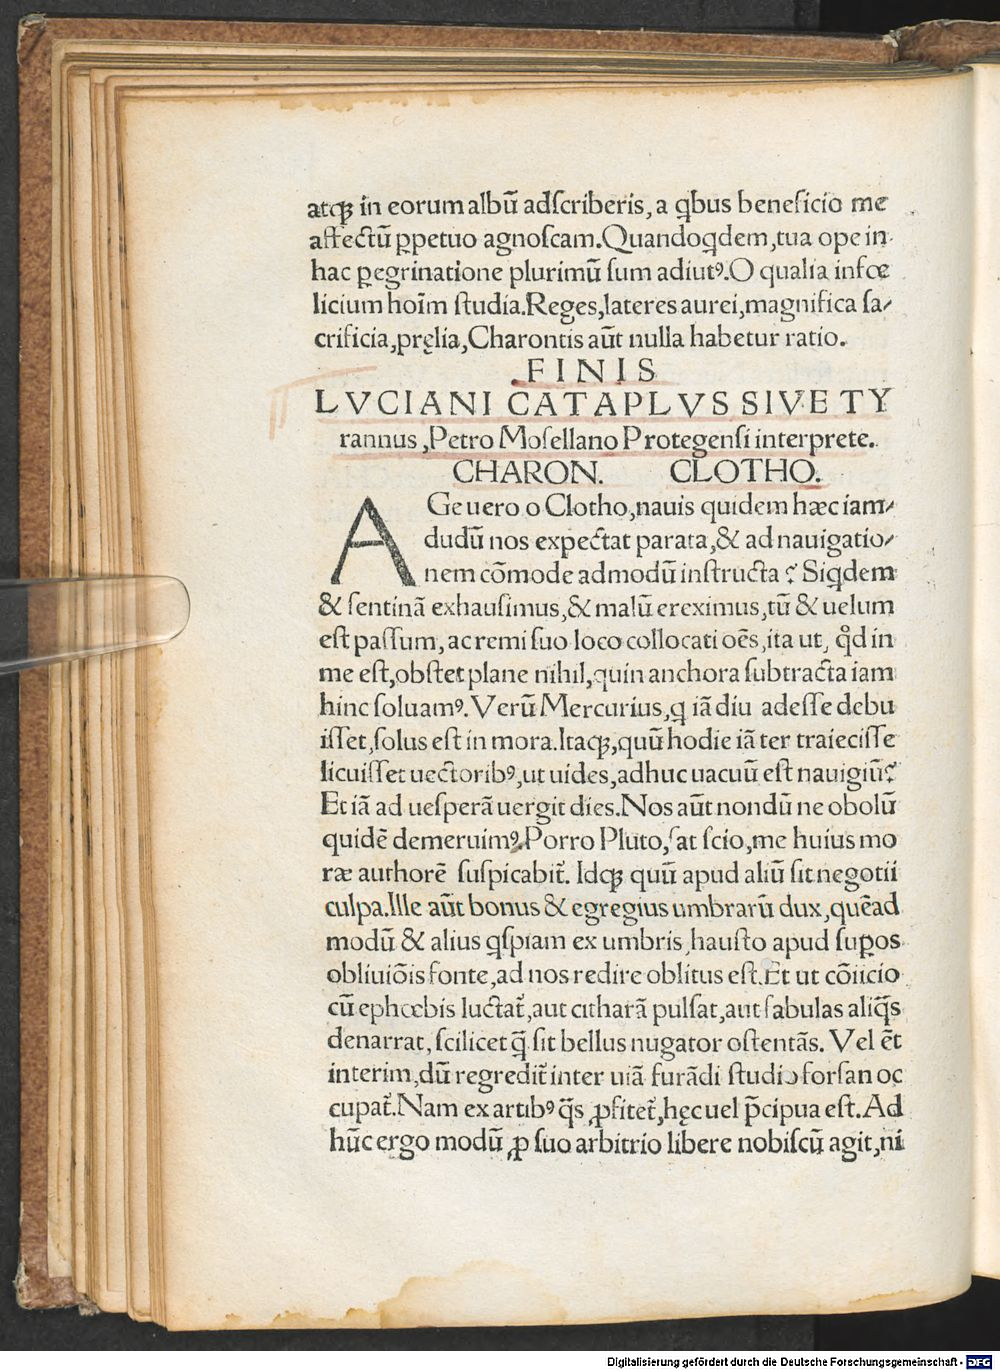 atqꝫ in eorum albū adſcriberis, a qͥbus beneficio me
affectū ꝑpetuo agnoſcam. Quandoqͥdem, tua ope in
hac ꝑegrinatione plurimū ſum adiutꝰ. O qualia infœ
licium hoīm ſtudia. Reges, lateres aurei, magnifica ſa⸗
crificia, pręlia, Charontis aūt nulla habetur ratio.
FINIS
LVCIANI CATAPLVS SIVE TY
rannus, Petro Moſellano Protegenſi interprete.
CHARON. CLOTHO.
AGe uero o Clotho, nauis quidem hæc iam⸗
dudū nos expectat parata, & ad nauigatio⸗
nem cōmode admodū inſtructa? Siqͥdem
& ſentinā exhauſimus, & malū ereximus, tū & uelum
eſt paſſum, ac remi ſuo loco collocati oēs, ita ut, qͦd in
me eſt, obſtet plane nihil, quin anchora ſubtracta iam
hinc ſoluamꝰ. Verū Mercurius, qͥ iā diu adeſſe debu
iſſet, ſolus eſt in mora. Itaqꝫ, quū hodie iā ter traieciſſe
licuiſſet uectoribꝰ, ut uides, adhuc uacuū eſt nauigiū?
Et iā ad ueſperā uergit dies. Nos aūt nondū ne obolū
quidē demeruimꝰ. Porro Pluto, ſat ſcio, me huius mo
ræ authorē ſuſpicabit̃. Idqꝫ quū apud aliū ſit negotii
culpa. Ille aūt bonus & egregius umbrarū dux, quēad
modū & alius qͥſpiam ex umbris, hauſto apud ſuꝑos
obliuiōis fonte, ad nos redire oblitus eſt. Et ut cōiicio
cū ephœbis luctat̃, aut citharā pulſat, aut fabulas aliq̄s
denarrat, ſcilicet q̄ ſit bellus nugator oſtentās. Vel ēt
interim, dū regredit̃ inter uiā furādi ſtudio forſan oc
cupat̃. Nam ex artibꝰ q̄s ꝓfitet̃, hęc uel p̄cipua eſt. Ad
hūc ergo modū ꝓ ſuo arbitrio libere nobiſcū agit, ni
Digitalisierung gefördert durch die Deutsche Forschungsgemeinschaft - DFG